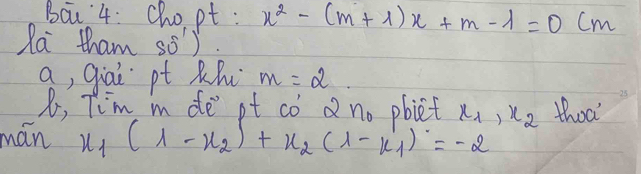 Bài 4: Cho pt: x² - (m + 1)x + m - 1 = 0 (m
là tham số).
a, Giải pt khi m = 2.
b, Tìm m để pt có 2 no pbiệt x₁, x₂ thoả
mãn x₁ (1 - x₂) + x₂ (1 - x₁) = -2